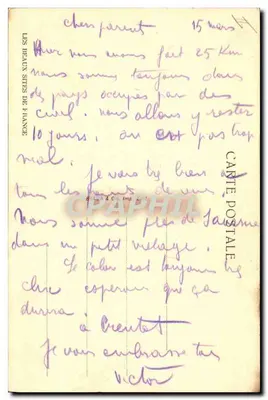 chers parents 15 mars
Hier nous avons fait 25 Km
nous sommes toujours dans
des pays occupés par des
civil. nous allons y rester
10 jours. on est pas trop
mal.
Je vais très bien et
tous les
Nous sommes près de Saverne
dans un petit village.
Le colon est toujours très
chic esperons que ça
durera
à Bientot
Je vous embrasse
Victor
CARTE POSTALE
LES BEAUX SITES DE FRANCE
CPAPHIL